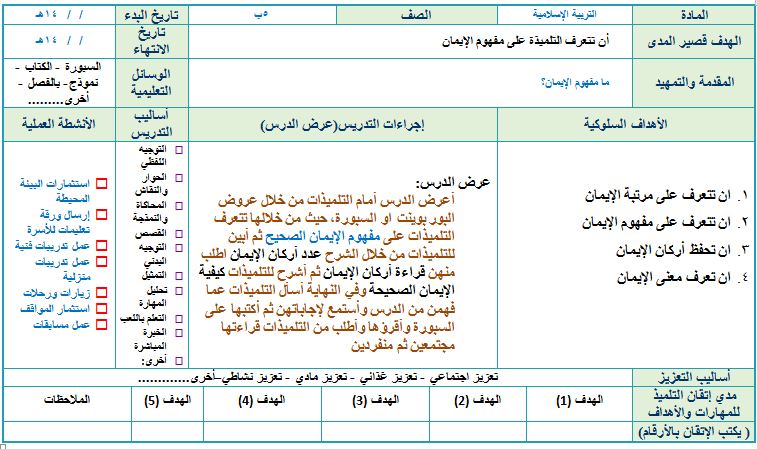 المادة التربية الإسلامية الصف ٥ب تاريخ البدء / / ١٤هـ
الهدف قصير المدى أن تتعرف التلميذة على مفهوم الإيمان تاريخ الانتهاء / / ١٤هـ
المقدمة والتمهيد ما مفهوم الإيمان؟ الوسائل التعليمية
السبورة - الكتاب -
نموذج- بالفصل -
أخرى.........
الأهداف السلوكية إجراءات التدريس(عرض الدرس) أساليب التدريس الأنشطة العملية
١. ان تتعرف على مرتبة الإيمان
٢. ان تتعرف على مفهوم الإيمان
٣. ان تحفظ أركان الإيمان
٤. ان تعرف معنى الإيمان
عرض الدرس:
أعرض الدرس أمام التلميذات من خلال عروض
البور بوينت او السبورة، حيث من خلالها تتعرف
التلميذات على مفهوم الإيمان الصحيح ثم أبين
للتلميذات من خلال الشرح عدد أركان الإيمان اطلب
منهن قراءة أركان الإيمان ثم أشرح للتلميذات كيفية
الإيمان الصحيحة وفي النهاية أسأل التلميذات عما
فهمن من الدرس وأستمع لإجاباتهن ثم أكتبها على
السبورة وأقرؤها وأطلب من التلميذات قراءتها
مجتمعين ثم منفردين
التوجيه
اللفظي
الحوار
والنقاش
المحاكاة
والنمذجة
القصص
التوجيه
البدني
التمثيل
تحليل
المهارة
التعلم باللعب
الخبرة
المباشرة
أخرى:
استثمارات البيئة
المحيطة
إرسال ورقة
تعليمات للأسرة
عمل تدريبات فنية
عمل تدريبات
منزلية
زيارات ورحلات
استثمار المواقف
عمل مسابقات
أساليب التعزيز تعزيز اجتماعي - تعزيز غذائي - تعزيز مادي - تعزيز نشاطي–أخرى.............
مدي إتقان التلميذ
للمهارات والأهداف
الهدف (1) الهدف (2) الهدف (3) الهدف (4) الهدف (5) الملاحظات
( يكتب الإتقان بالأرقام)